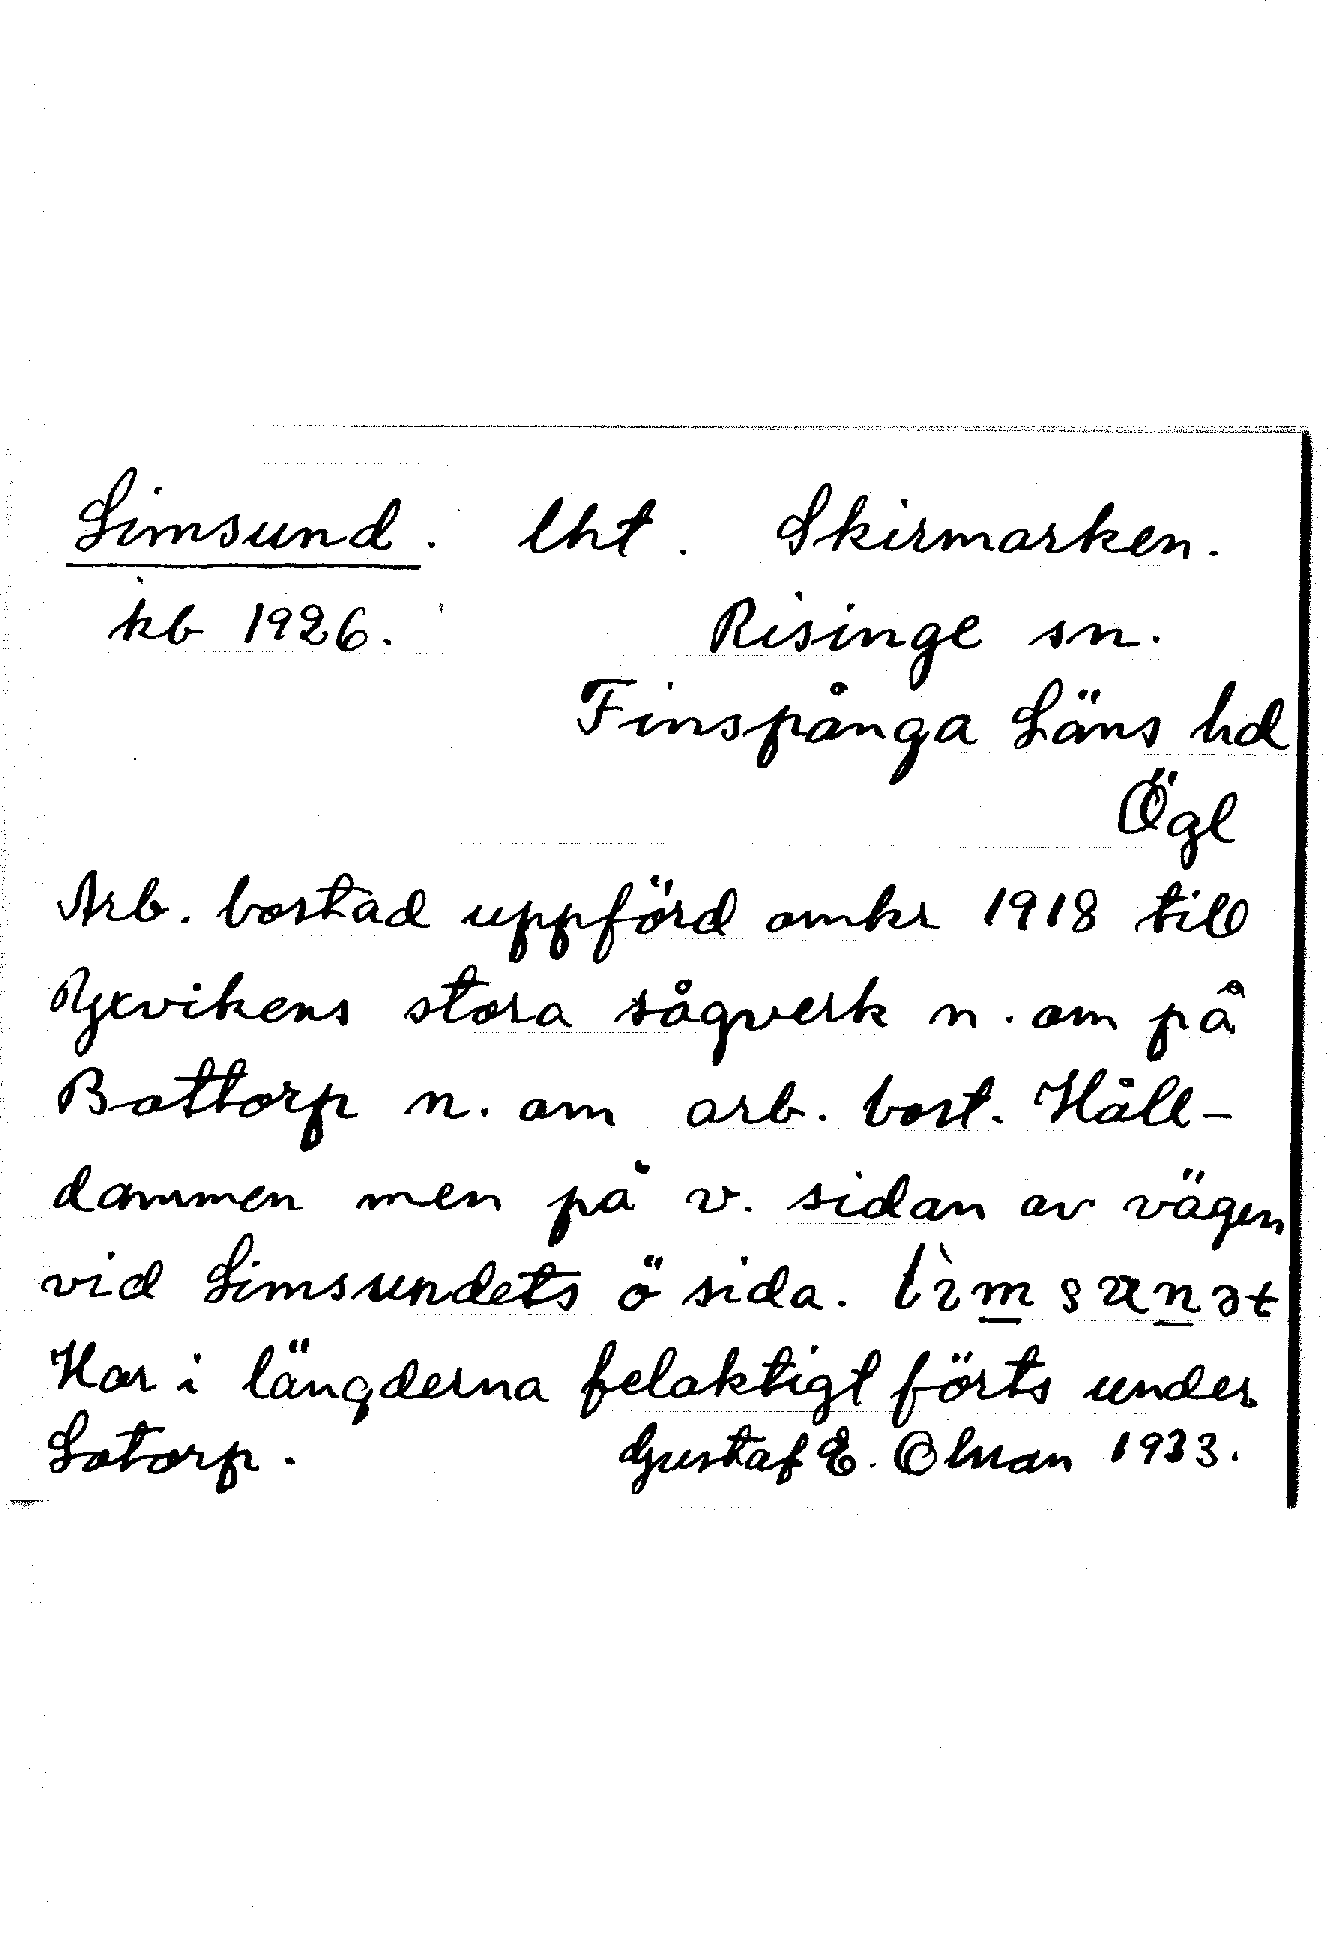 Limsund. lht. Skirmarken.
kb 1926. Risinge sn.
Finspånga Läns hd
Ögl
Arb. bostad uppförd omkr 1918 till
Yxvikens stora sågverk n. om på
Bottorp n. om arb. bost. Håll-
dammen men på v. sidan av vägen
vid Limsundets ö sida.
Har i längderna felaktigt förts under
Lotorp. Gustaf E. Ohman 1933.